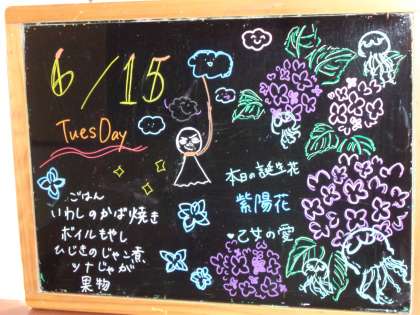 6/15
TuesDay
ごはん
いわしのかば焼き
ボイルもやし
ひじきのじゃこ煮
ツナじゃが
果物
本日の誕生花
紫陽花
♥乙女の愛